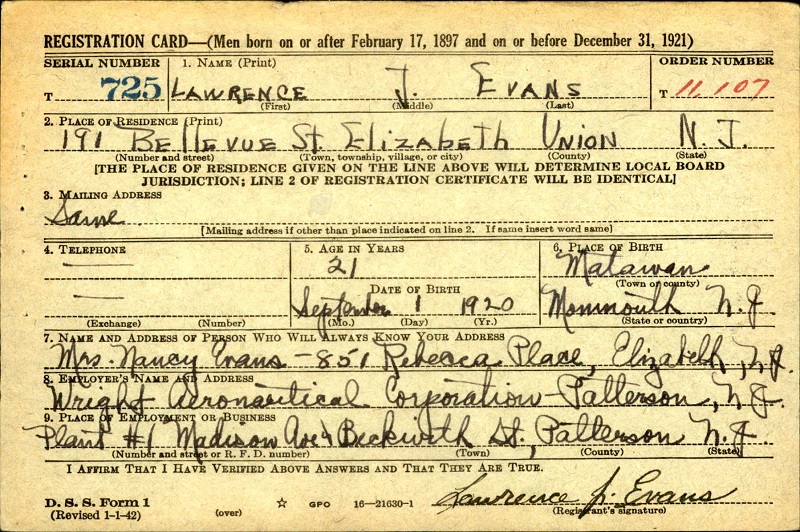 REGISTRATION CARD—(Men born on or after February 17, 1897 and on or before December 31, 1921)
SERIAL NUMBER 1. NAME (Print) ORDER NUMBER
T 725 LAWRENCE J. EVANS T 11,107
(First) (Middle) (Last)
2. PLACE OF RESIDENCE (Print)
191 BELLEVUE St. ELIZABETH UNION N. J.
(Number and street) (Town, township, village, or city) (County) (State)
[THE PLACE OF RESIDENCE GIVEN ON THE LINE ABOVE WILL DETERMINE LOCAL BOARD
JURISDICTION; LINE 2 OF REGISTRATION CERTIFICATE WILL BE IDENTICAL]
3. MAILING ADDRESS
Same
[Mailing address if other than place indicated on line 2. If same insert word same]
4. TELEPHONE 5. AGE IN YEARS 6. PLACE OF BIRTH
— 21 Matawan
DATE OF BIRTH (Town or county)
— September 1 1920 Monmouth N. J.
(Exchange) (Number) (Mo.) (Day) (Yr.) (State or country)
7. NAME AND ADDRESS OF PERSON WHO WILL ALWAYS KNOW YOUR ADDRESS
Mrs. Nancy Evans – 851 Rebecca Place, Elizabeth, N.J.
8. EMPLOYER'S NAME AND ADDRESS
Wright Aeronautical Corporation – Patterson, N. J.
9. PLACE OF EMPLOYMENT OR BUSINESS
Plant #1 Madison Ave & Beckwith St., Patterson N. J.
(Number and street or R. F. D. number) (Town) (County) (State)
I AFFIRM THAT I HAVE VERIFIED ABOVE ANSWERS AND THAT THEY ARE TRUE.
D. S. S. Form 1
(Revised 1-1-42) (over) ☆ GPO 16—21630-1 Lawrence J. Evans
(Registrant's signature)